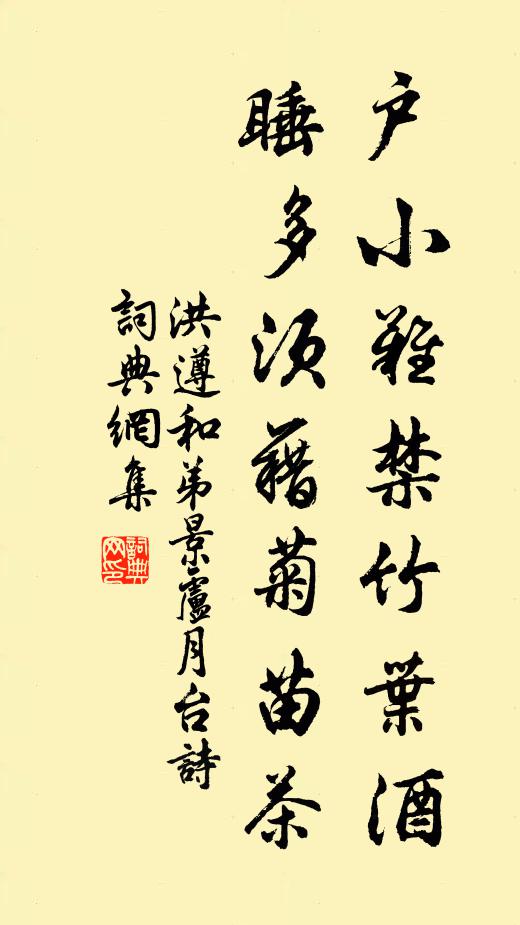 户小難禁竹葉酒
睡多須藉菊苗茶
洪遵和弟景廬月台詩
詞典網集
詞典網印